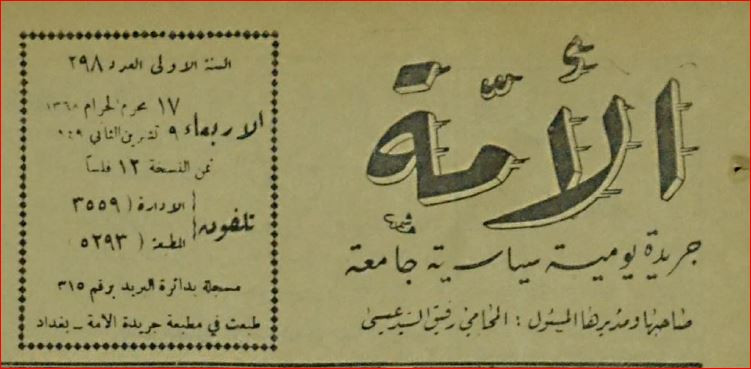 الأمة
جريدة يومية سياسية جامعة
صاحبها ومديرها المسئول : المحامي رفيق السيد عيسى
السنة الاولى العدد ٢٩٨
الاربعاء
١٧ محرم الحرام ١٣٦٨
٩ تشرين الثاني ٩٤٩
ثمن النسخة ١٢ فلساً
تلفون
الادارة ( ٣٥٥٩
المطبعة ( ٥٢٩٣ )
مسجلة بدائرة البريد برقم ٣١٥
طبعت في مطبعة جريدة الامة - بغداد